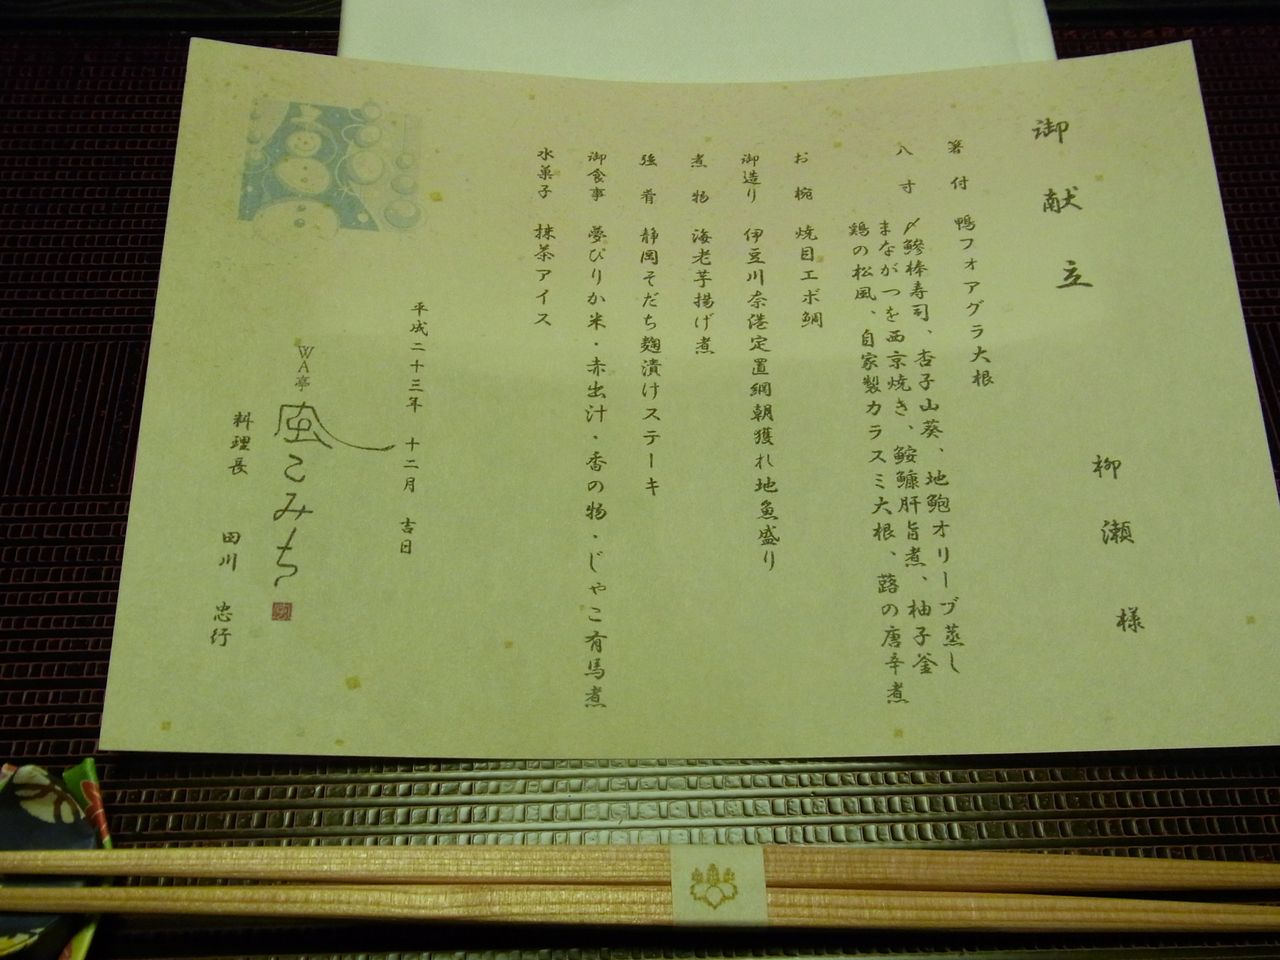 御献立
柳瀬様
箸付 鴨フォアグラ大根
八寸 〆鯵棒寿司、杏子山葵、地鮑オリーブ蒸し
まながつを西京焼き、鮟鱇肝旨煮、柚子釜
鶏の松風、自家製カラスミ大根、蕗の唐辛煮
お椀 焼目エボ鯛
御造り 伊豆川奈港定置網朝獲れ地魚盛り
煮物 海老芋揚げ煮
強肴 静岡そだち麹漬けステーキ
御食事 夢ぴりか米・赤出汁・香の物・じゃこ有馬煮
水菓子 抹茶アイス
平成二十三年 十二月 吉日
WA亭 風こみち
料理長 田川 忠行